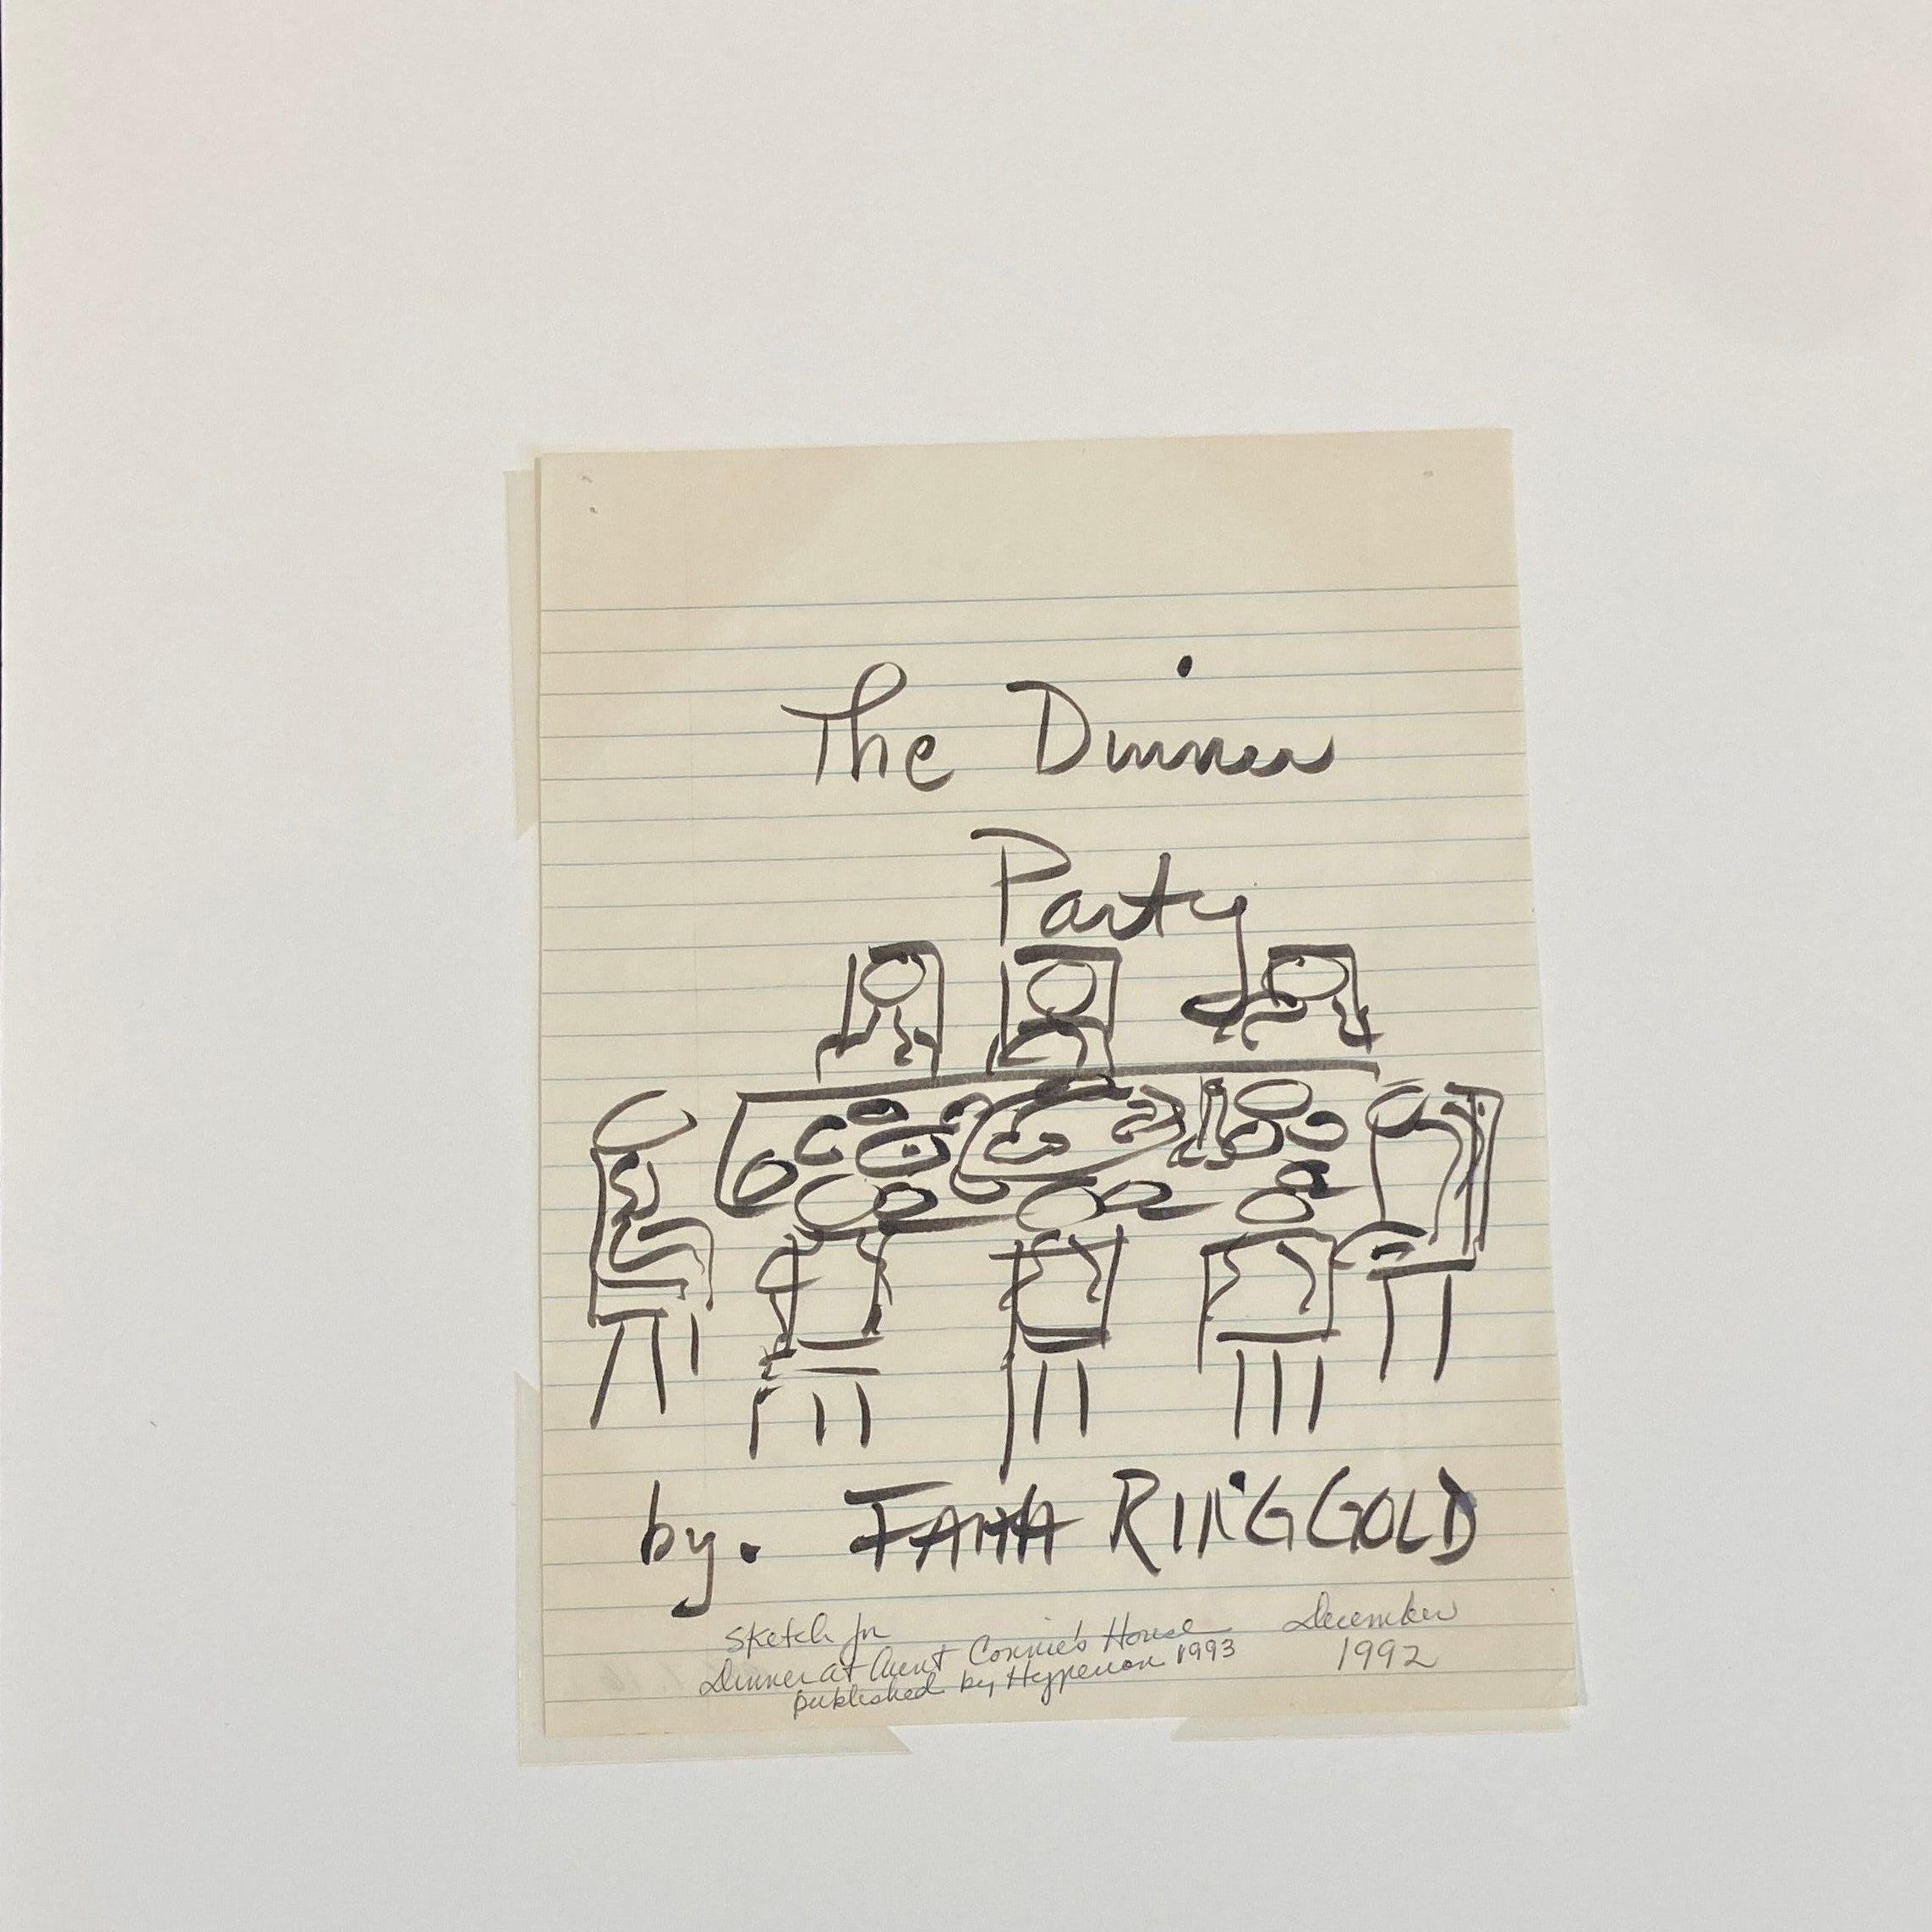 The Dinner
Party
by. FAITH RINGGOLD
Sketch for
Dinner at Aunt Connie's House
published by Hyperion 1993
December
1992